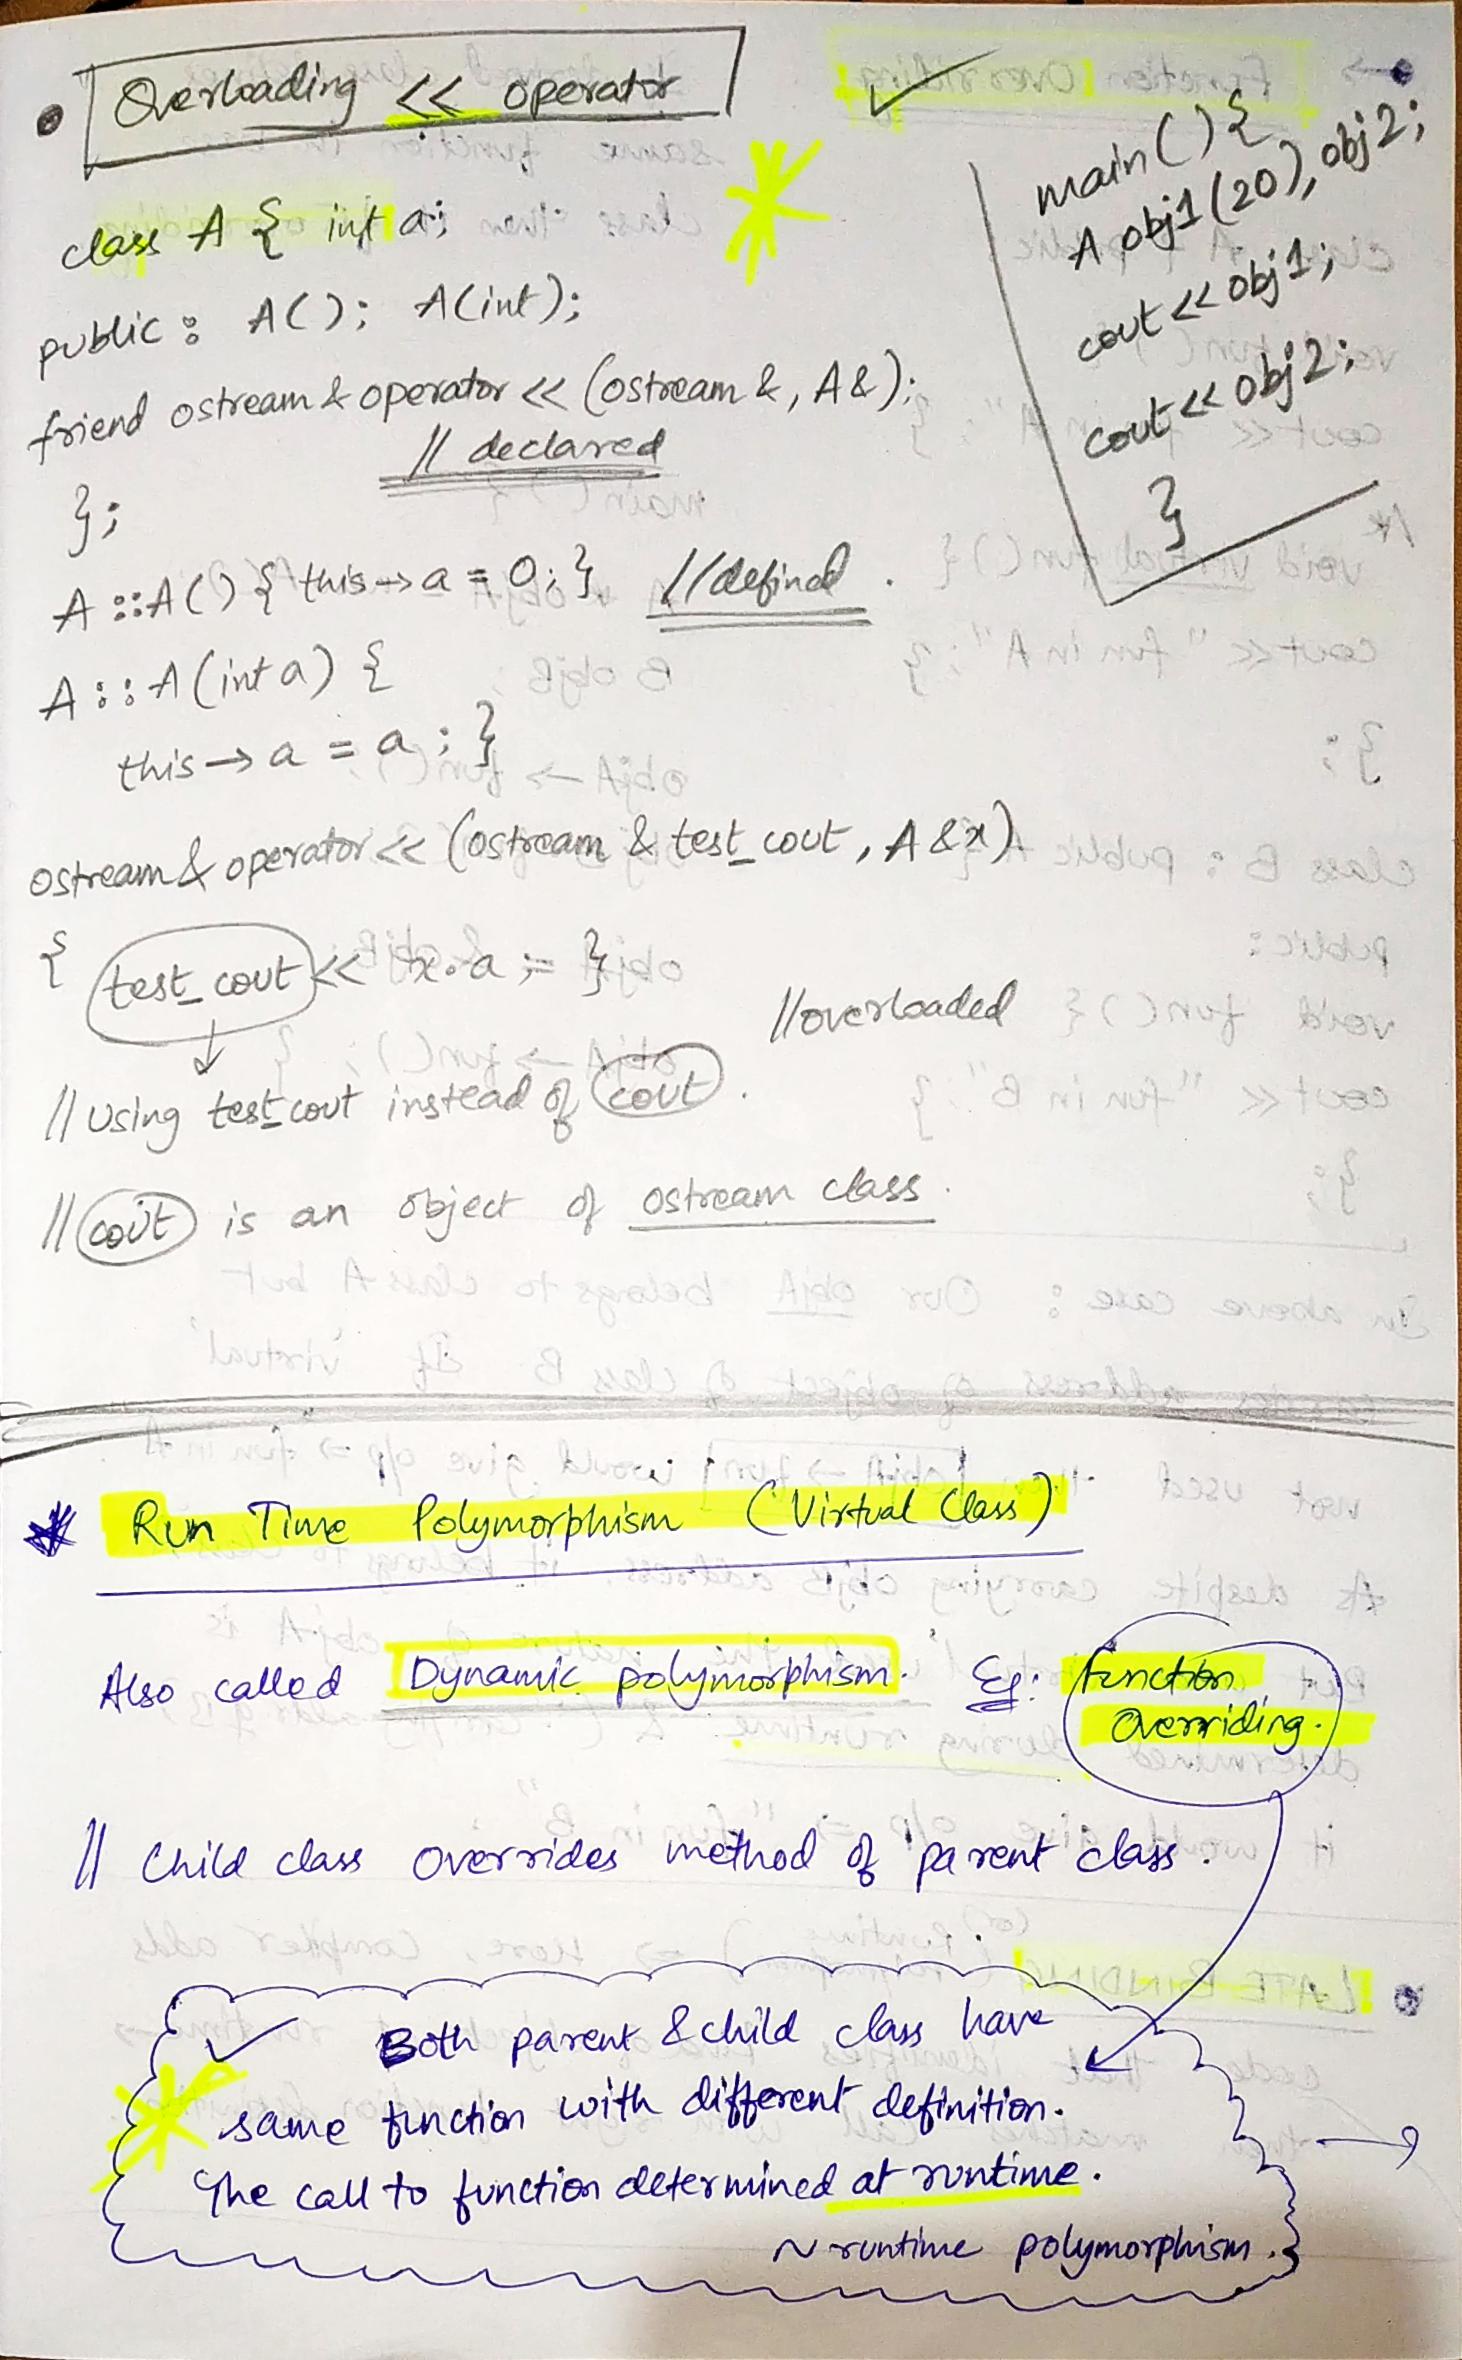 Overloading << operator
class A { int a;
public : A(); A(int);
friend ostream & operator << (ostream &, A &);
// declared
};
A :: A() { this → a = 0; } //defined .
A :: A (int a) {
this → a = a ; }
ostream & operator << (ostream & test_cout , A &x)
{ test_cout << x.a ; }
//overloaded
// Using test_cout instead of cout .
// cout is an object of ostream class .
main () {
A obj1 (20), obj2 ;
cout << obj1 ;
cout << obj2 ;
}
Run Time Polymorphism (Virtual Class)
Also called Dynamic polymorphism. Eg: Function
Overriding.
// Child class overrides method of parent class .
Both parent & child class have
same function with different definition.
The call to function determined at runtime .
~ runtime polymorphism .